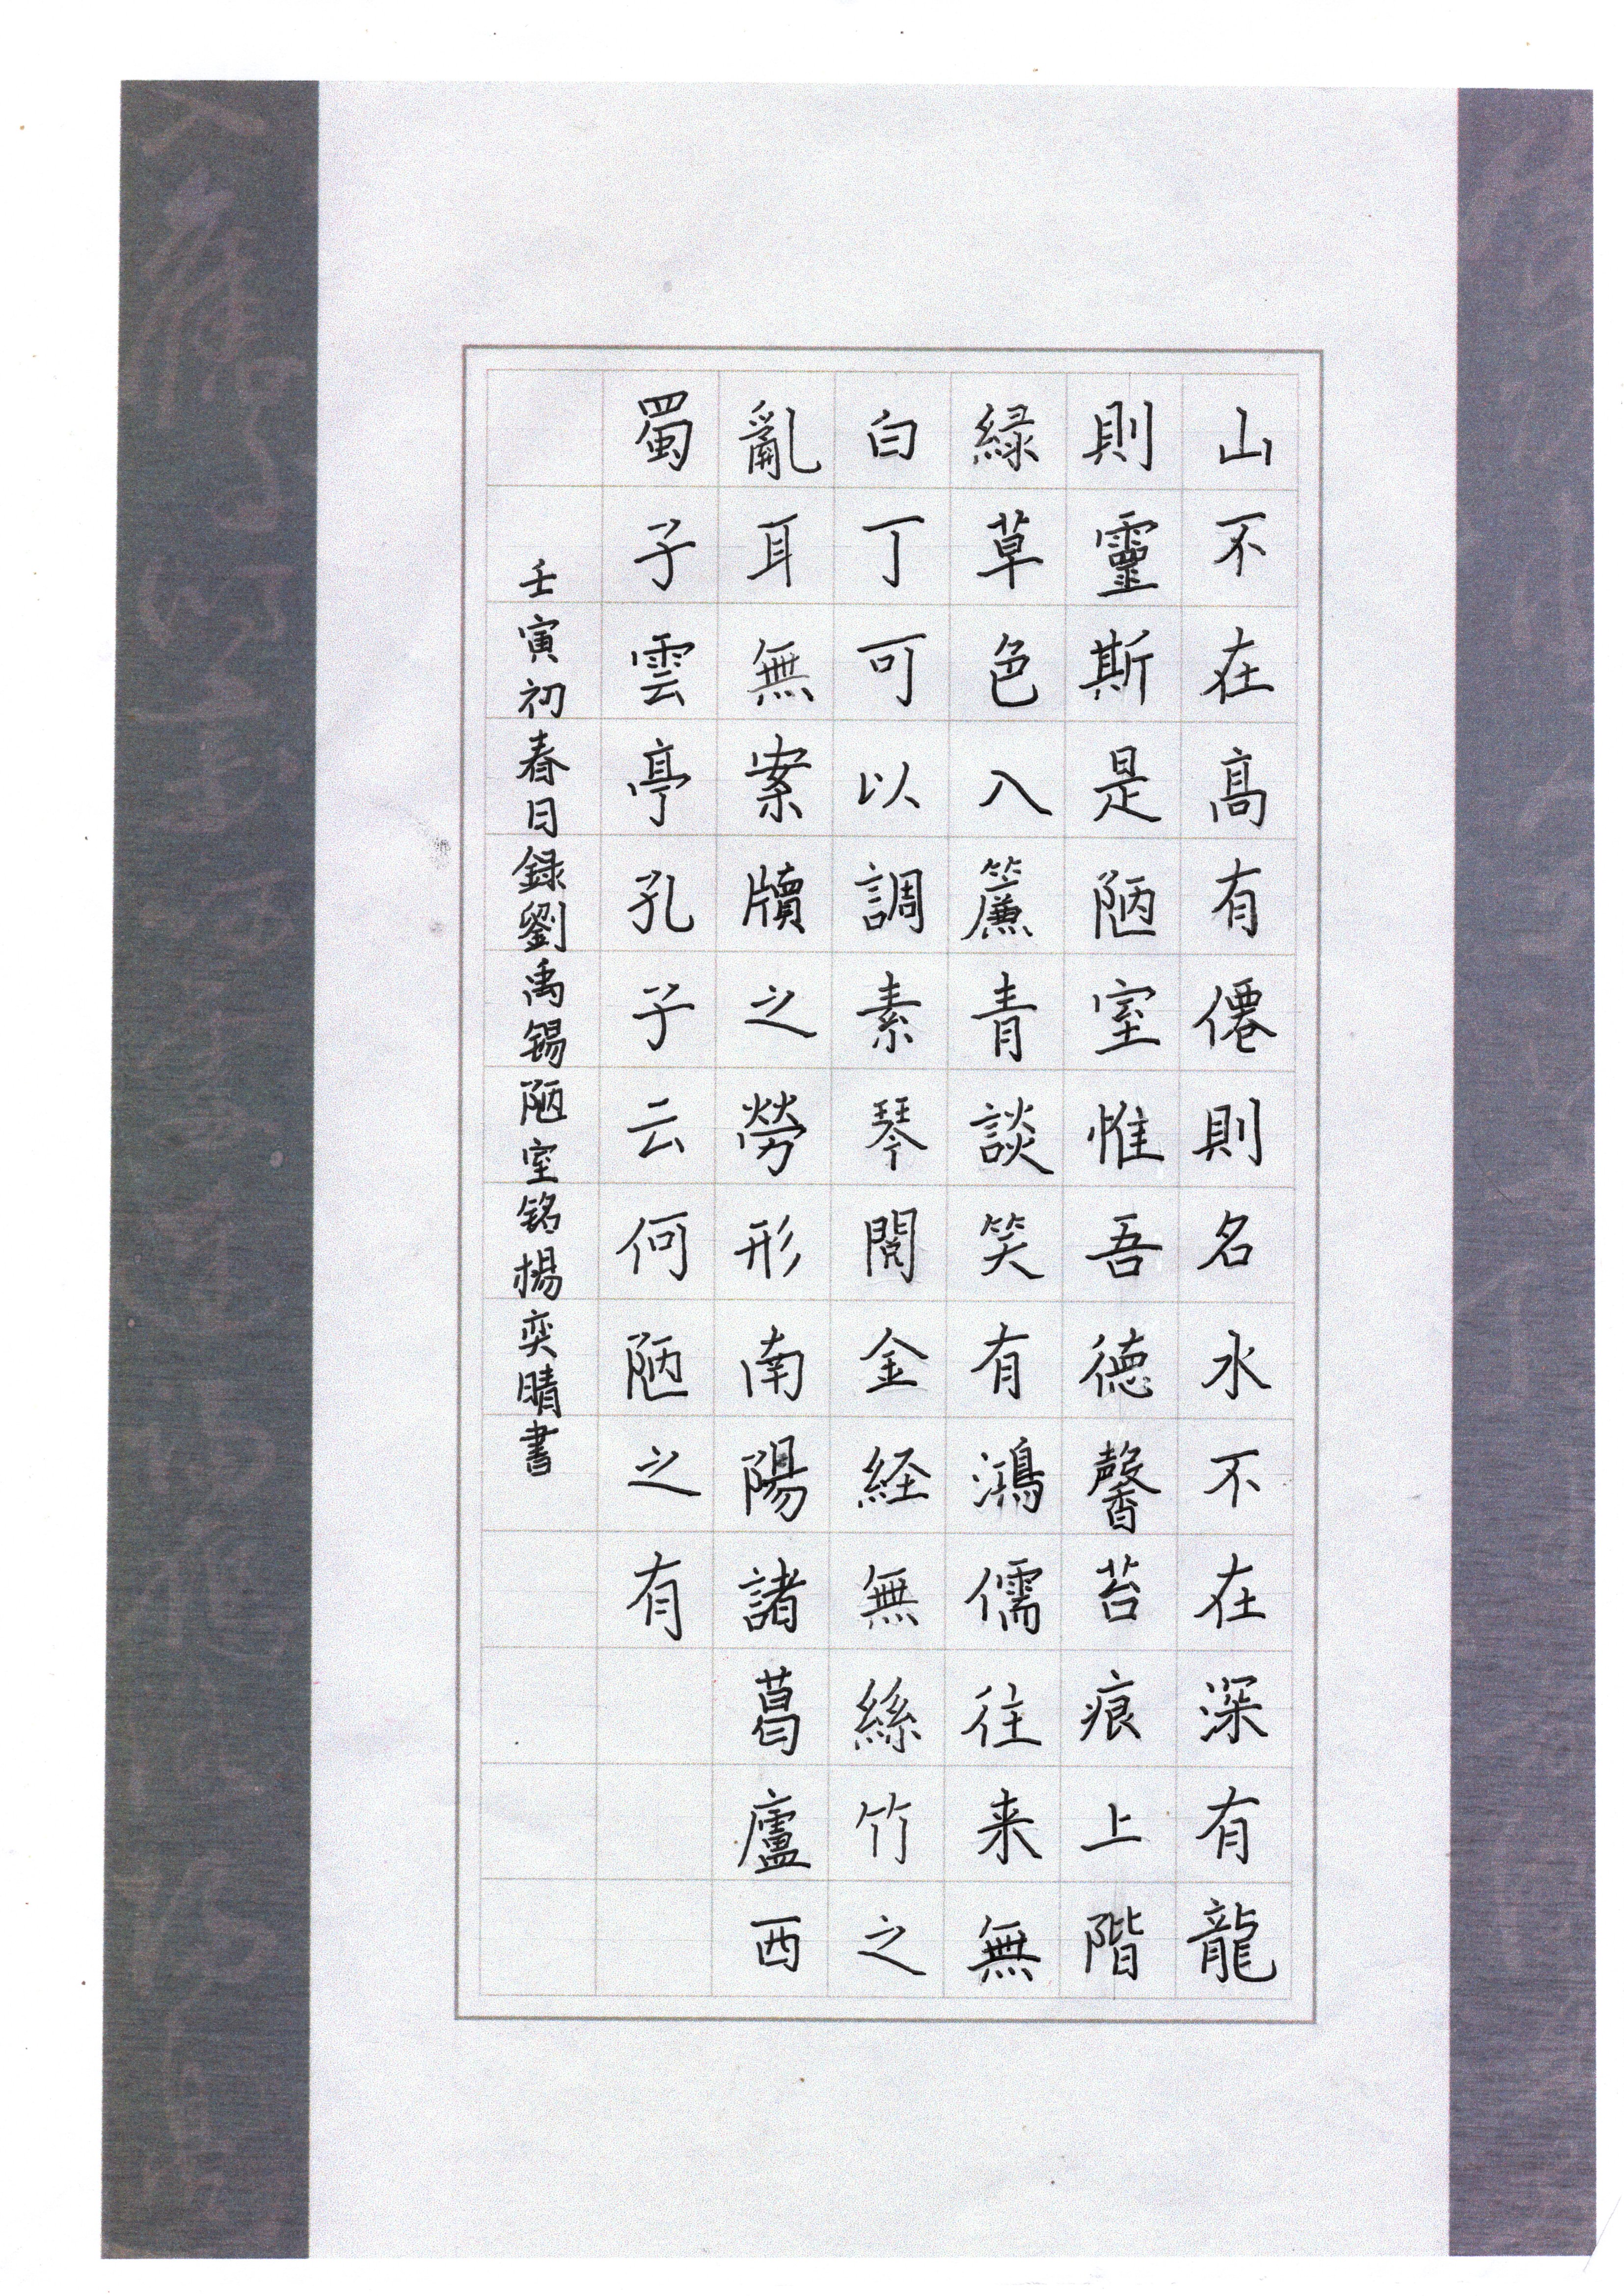 山不在高有僊則名水不在深有龍
則靈斯是陋室惟吾德馨苔痕上階
緑草色入簾青談笑有鴻儒往来無
白丁可以調素琴閲金経無絲竹之
亂耳無案牘之勞形南陽諸葛廬西
蜀子雲亭孔子云何陋之有
壬寅初春日録劉禹锡陋室铭楊奕晴書